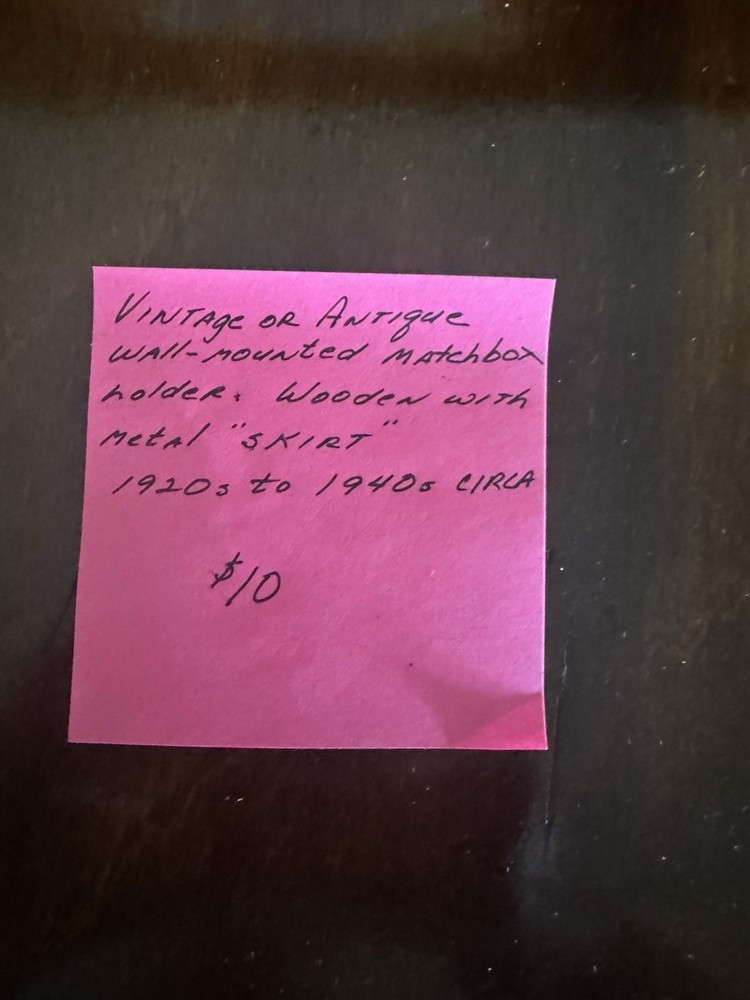 Vintage or Antique
wall-mounted matchbox
holder. Wooden with
metal "SKIRT"
1920s to 1940s CIRCA
$10